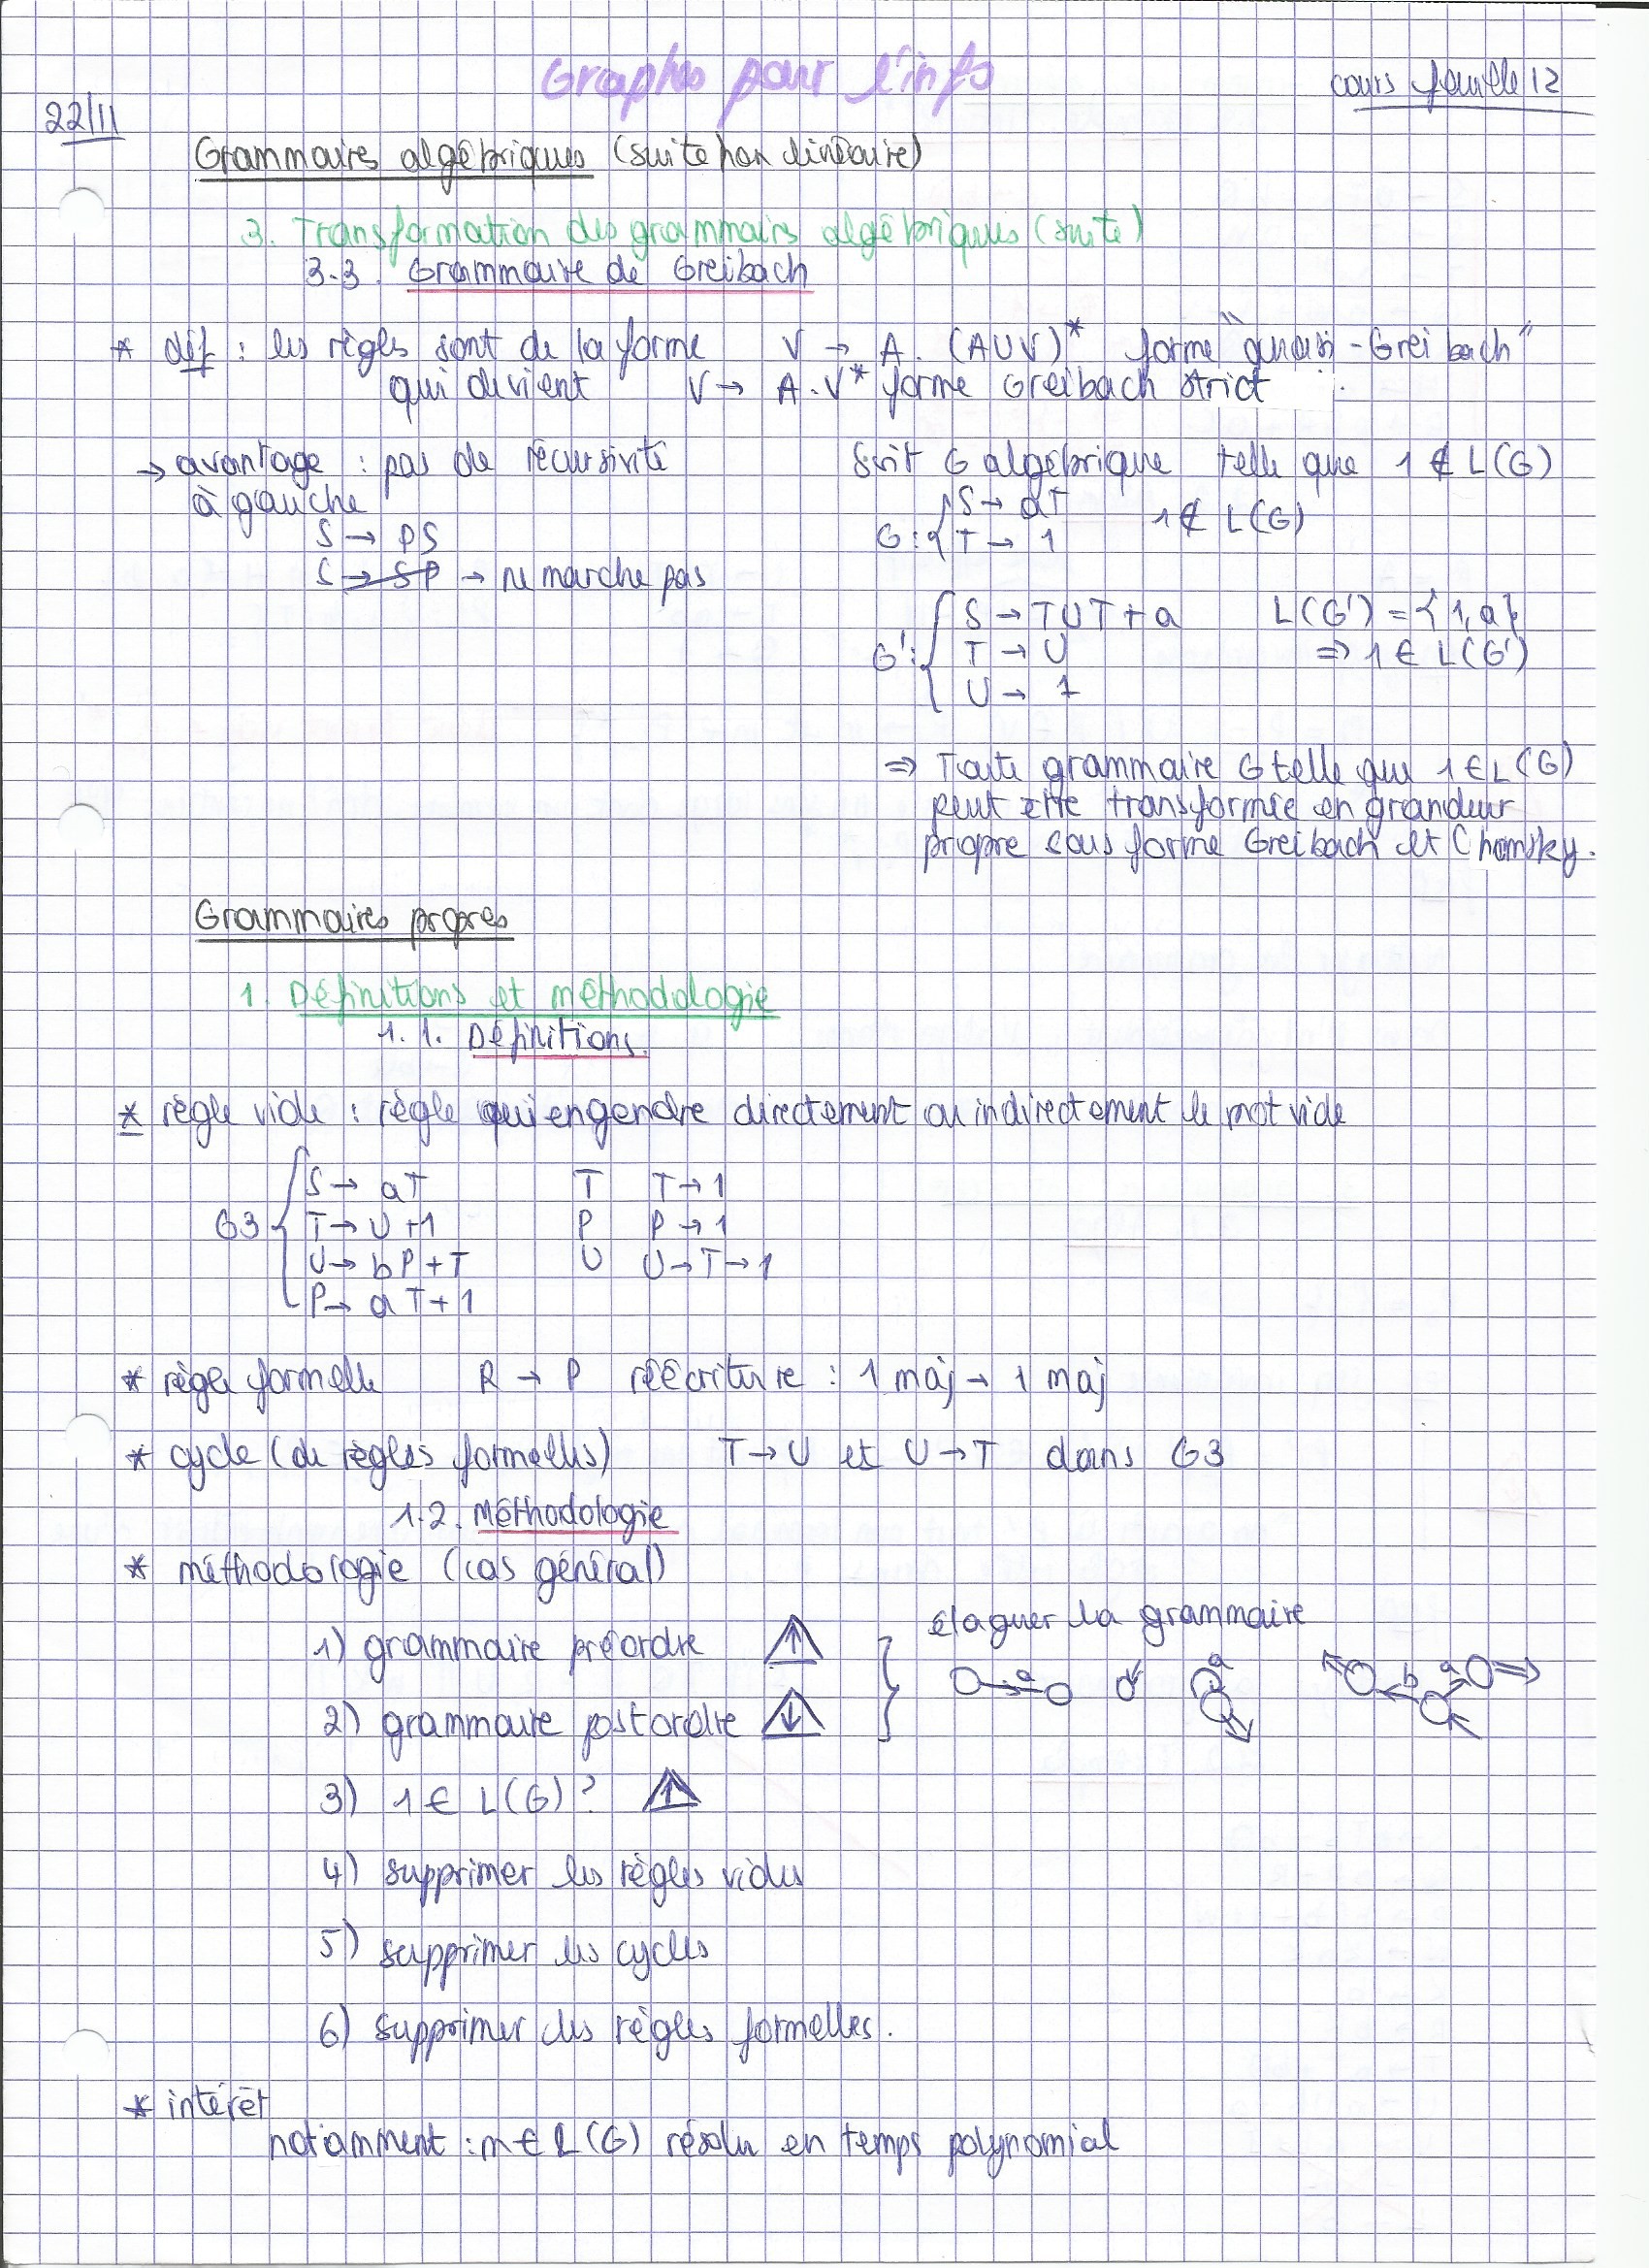 Graphes pour l'info
cours feuille 12
22/11
Grammaires algébriques (suite non linéaire)
3. Transformation des grammairs algébriques (suite)
3.3. Grammaire de Greibach
* déf : les règles sont de la forme V → A. (AUV)* forme "quasi-Greibach"
qui devient V → A.V* forme Greibach strict
→ avantage : pas de récursivité
à gauche
S → PS
S → SP → ne marche pas
Soit G algébrique telle que 1 ∉ L(G)
G : { S → aT
T → 1
1 ∉ L(G)
G' : { S → TUT + a
T → U
U → 1
L(G') = {1, a}
⇒ 1 ∈ L(G')
⇒ Toute grammaire G telle que 1 ∈ L(G)
peut être transformée en grandeur
propre sous forme Greibach et Chomsky.
Grammaires propres
1. Définitions et méthodologie
1.1. Définitions.
* règle vide : règle qui engendre directement ou indirectement le mot vide
G3 { S → aT
T → U + 1
U → bP + T
P → aT + 1
T T → 1
P P → 1
U U → T → 1
* règle formelle R → P réécriture : 1 maj → 1 maj
* cycle (de règles formelles) T → U et U → T dans G3
1.2. Méthodologie
* méthodologie (cas général)
1) grammaire préordre ↑
2) grammaire postordre ↓
élaguer la grammaire
a a b a
3) 1 ∈ L(G) ? ↑
4) supprimer les règles vides
5) supprimer les cycles
6) supprimer les règles formelles.
* intérêt
notamment : m ∈ L(G) résolu en temps polynomial